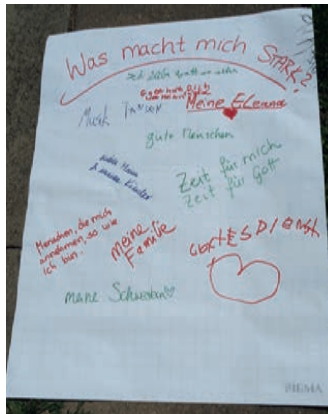 Was macht mich STARK?
Meine ELeana
Musik Tanzen
gute Menschen
mein Mann
& meine Kinder
Zeit für mich
Zeit für Gott
Menschen, die mich
annehmen, so wie
ich bin.
meine
Familie
GOttESDIENSt
meine Schwestern